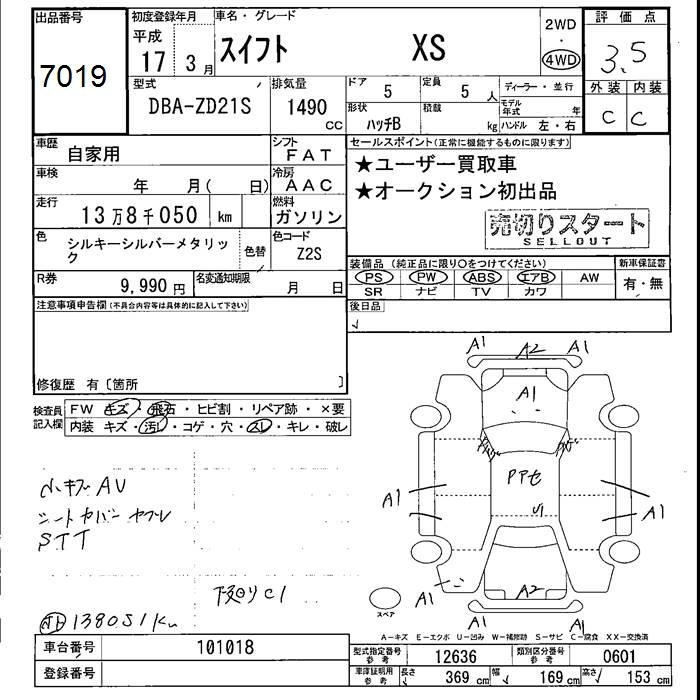 出品番号
7019
初度登録年月
平成
17 3月
車名・グレード
スイフト XS
2WD
・
4WD
評価点
3.5
外装 内装
C C
型式
DBA-ZD21S
排気量
1490
CC
ドア
5
定員
5 人
ディーラー・並行
形状
ハッチB
積載
kg
モデル年式 年
ハンドル 左・右
車歴
自家用
シフト
FAT
車検
年 月( 日)
冷房
AAC
走行
13万8千050 km
燃料
ガソリン
色
シルキーシルバーメタリック
色替
色コード
Z2S
R券
9,990円
名変通知期限
月 日
セールスポイント(正常に機能するものに限ります)
★ユーザー買取車
★オークション初出品
売切りスタート
SELLOUT
装備品(純正品に限り○をつけてください)
PS PW ABS エアB AW
SR ナビ TV カワ
新車保証書
有・無
後日品
注意事項申告欄(不具合内容等は具体的に記入して下さい)
修復歴 有〔箇所 〕
検査員記入欄
FW キズ・飛石・ヒビ割・リペア跡・×要
内装 キズ・汚レ・コゲ・穴・スレ・キレ・破レ
小キズ AU
シートカバー ヤブレ
STT
下回りC1
138051Km
A1 A2 A1
A1
Pアセ
U1
A1
A1
A1
A2
A1
スペア
A-キズ E-エクボ U-凹み W-補修跡 S-サビ C-腐食 XX-交換済
車台番号
101018
登録番号
型式指定番号
参考
12636
類別区分番号
参考
0601
車庫証明用
参考
長さ 369cm 幅 169cm 高さ 153cm